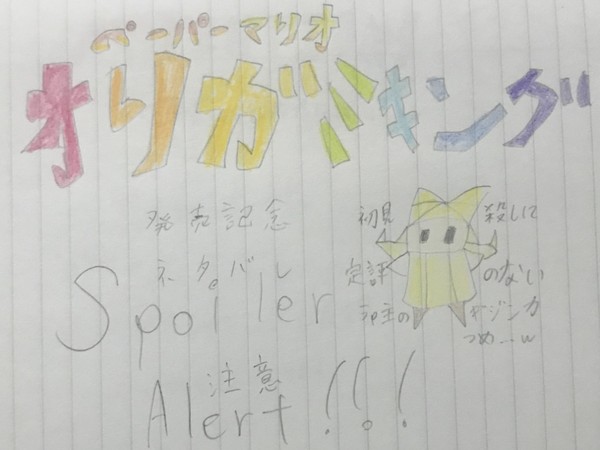 ペーパーマリオ
オリガミキング
発売記念
ネタバレ
Spoiler
注意
Alert!!!
初見殺しに
定評のない
うp主の